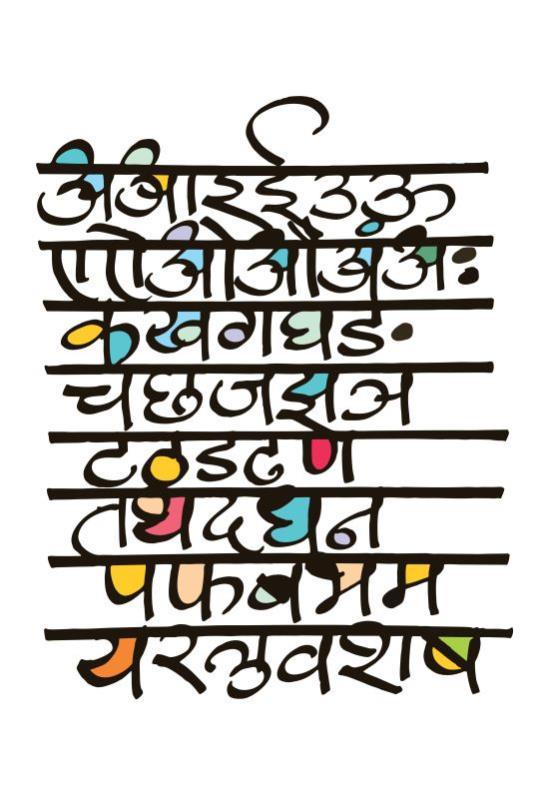 अ आ इ ई उ ऊ
ए ऐ ओ औ अं अः
क ख ग घ ङ
च छ ज झ ञ
ट ठ ड ढ ण
त थ द ध न
प फ ब भ म
य र ल व श ष